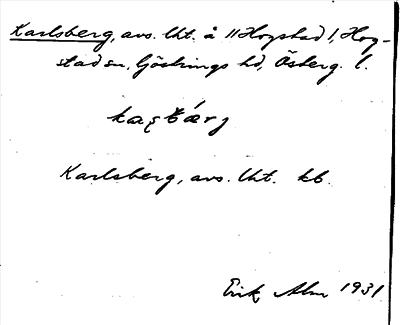 Karlsberg, avs. lht. å 11 Hogstad 1, Hog-
stad sn, Göstrings hd, Österg. l.
Karlsberg, avs. lht. kb.
Erik Alm 1931